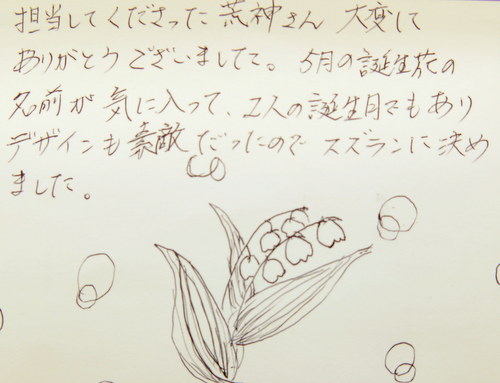 担当してくださった荒神さん 大変に
ありがとうございました。5月の誕生花の
名前が気に入って、2人の誕生月でもあり
デザインも素敵だったのでスズランに決め
ました。